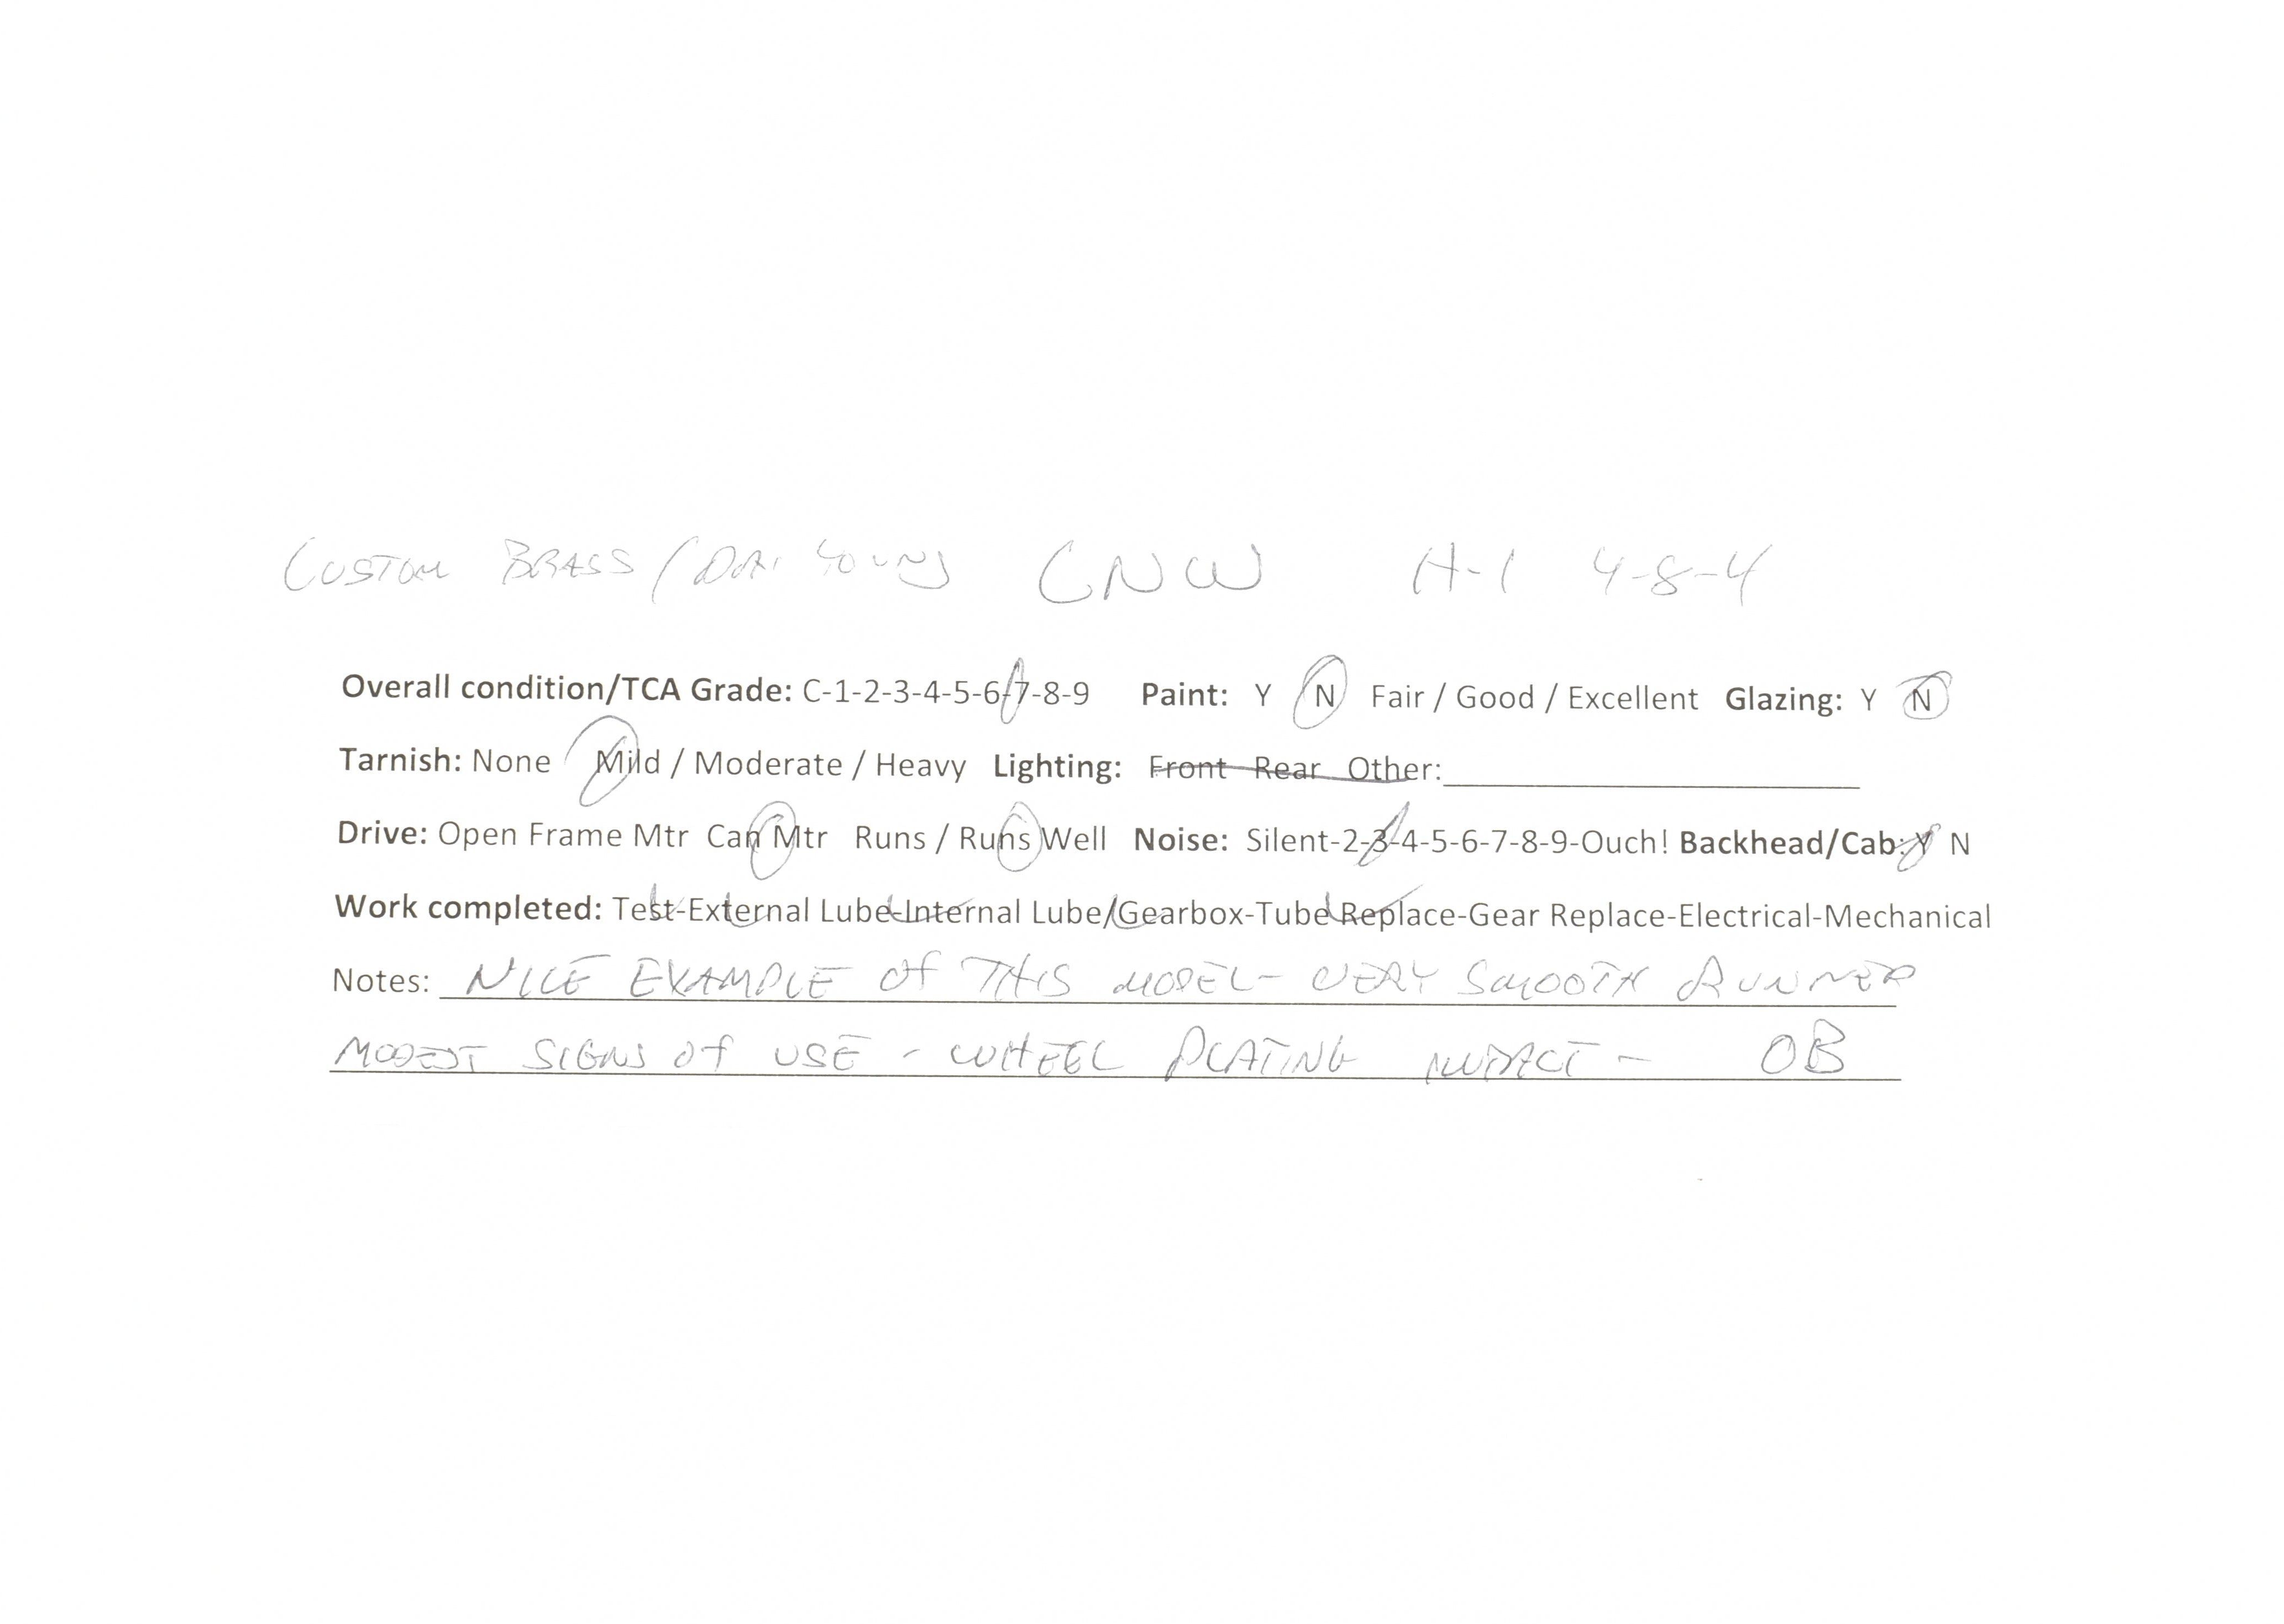 CUSTOM BRASS / DAI YOUNG CNW H-1 4-8-4
Overall condition/TCA Grade: C-1-2-3-4-5-6-7-8-9 Paint: Y N Fair / Good / Excellent Glazing: Y N
Tarnish: None Mild / Moderate / Heavy Lighting: Front Rear Other:
Drive: Open Frame Mtr Can Mtr Runs / Runs Well Noise: Silent-2-3-4-5-6-7-8-9-Ouch! Backhead/Cab: Y N
Work completed: Test-External Lube-Internal Lube/Gearbox-Tube Replace-Gear Replace-Electrical-Mechanical
Notes: NICE EXAMPLE OF THIS MODEL - VERY SMOOTH RUNNER
MODEST SIGNS OF USE - WHEEL PLATING INTACT - OB